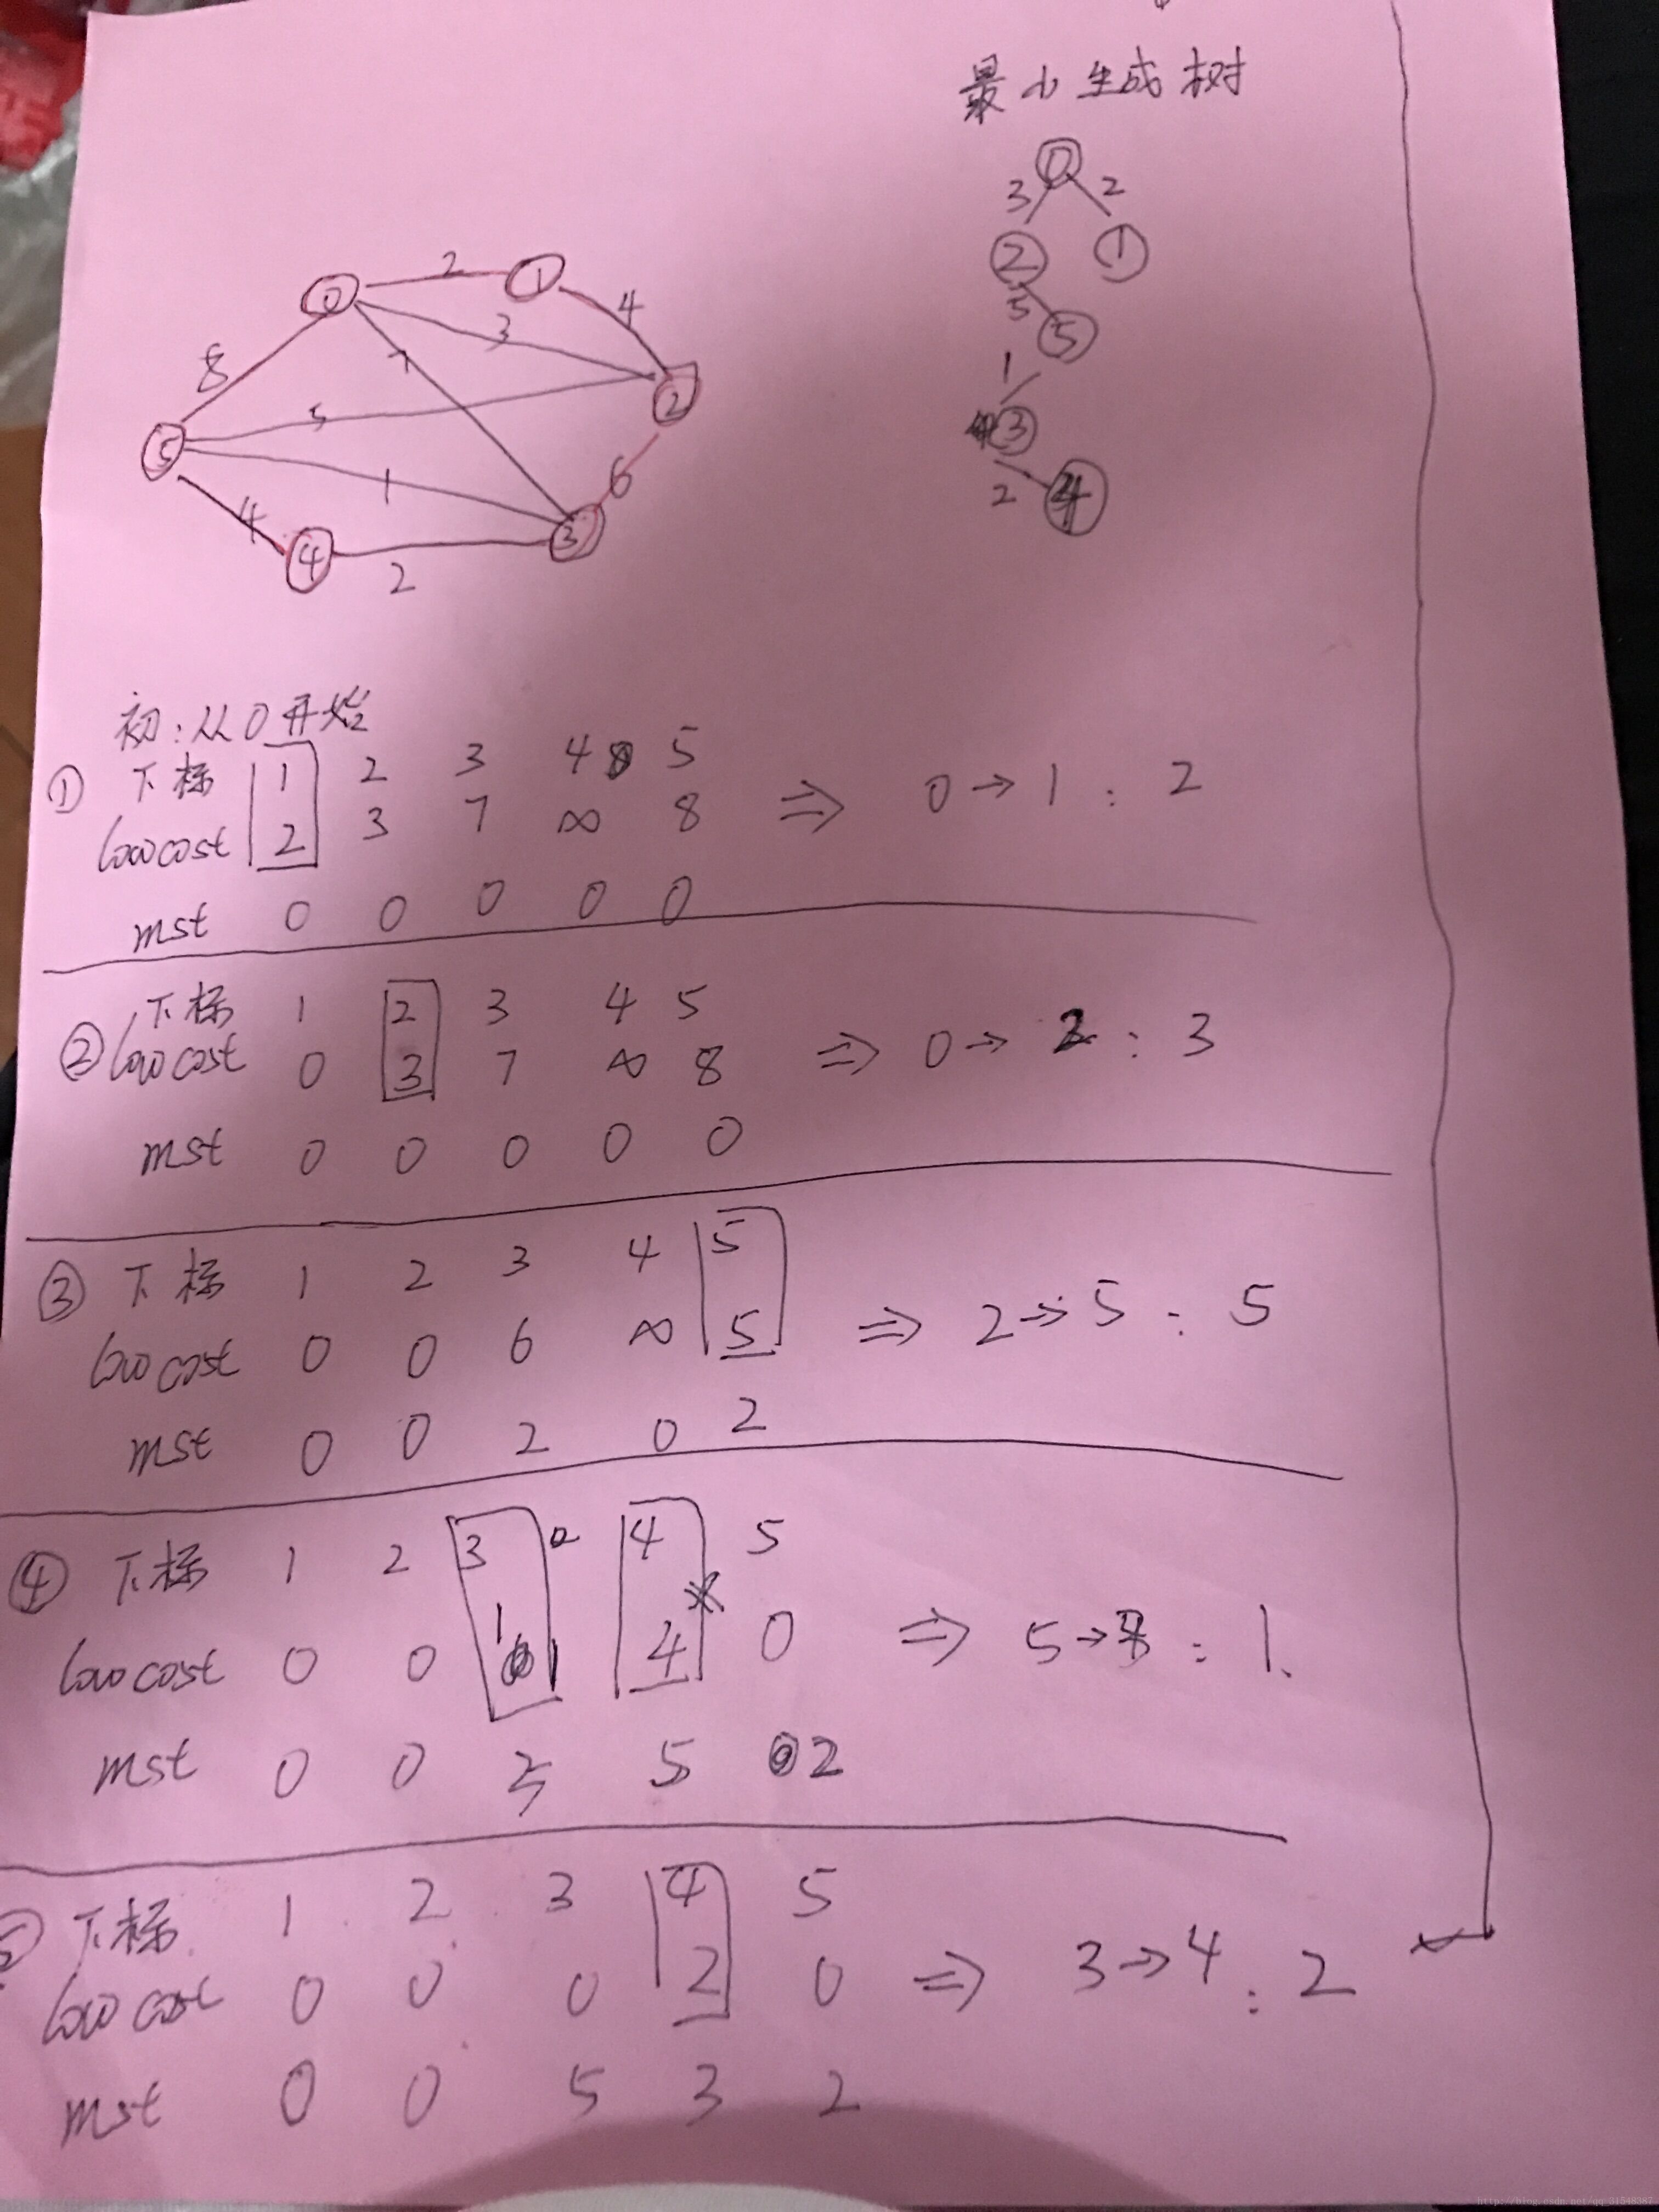 最小生成树
0
3 2
2 1
5
5
1
3
2 4
0 2 1
4
3
8 7
2
5
5
6
1
4
3
4
2
初:从0开始
① 下标 1 2 3 4 5
lowcost 2 3 7 ∞ 8 ⇒ 0→1 : 2
mst 0 0 0 0 0
② 下标 1 2 3 4 5
lowcost 0 3 7 ∞ 8 ⇒ 0→2 : 3
mst 0 0 0 0 0
③ 下标 1 2 3 4 5
lowcost 0 0 6 ∞ 5 ⇒ 2→5 : 5
mst 0 0 2 0 2
④ 下标 1 2 3 4 5
lowcost 0 0 1 4 0 ⇒ 5→3 : 1.
mst 0 0 5 5 2
⑤ 下标 1 2 3 4 5
lowcost 0 0 0 2 0 ⇒ 3→4 : 2
mst 0 0 5 3 2